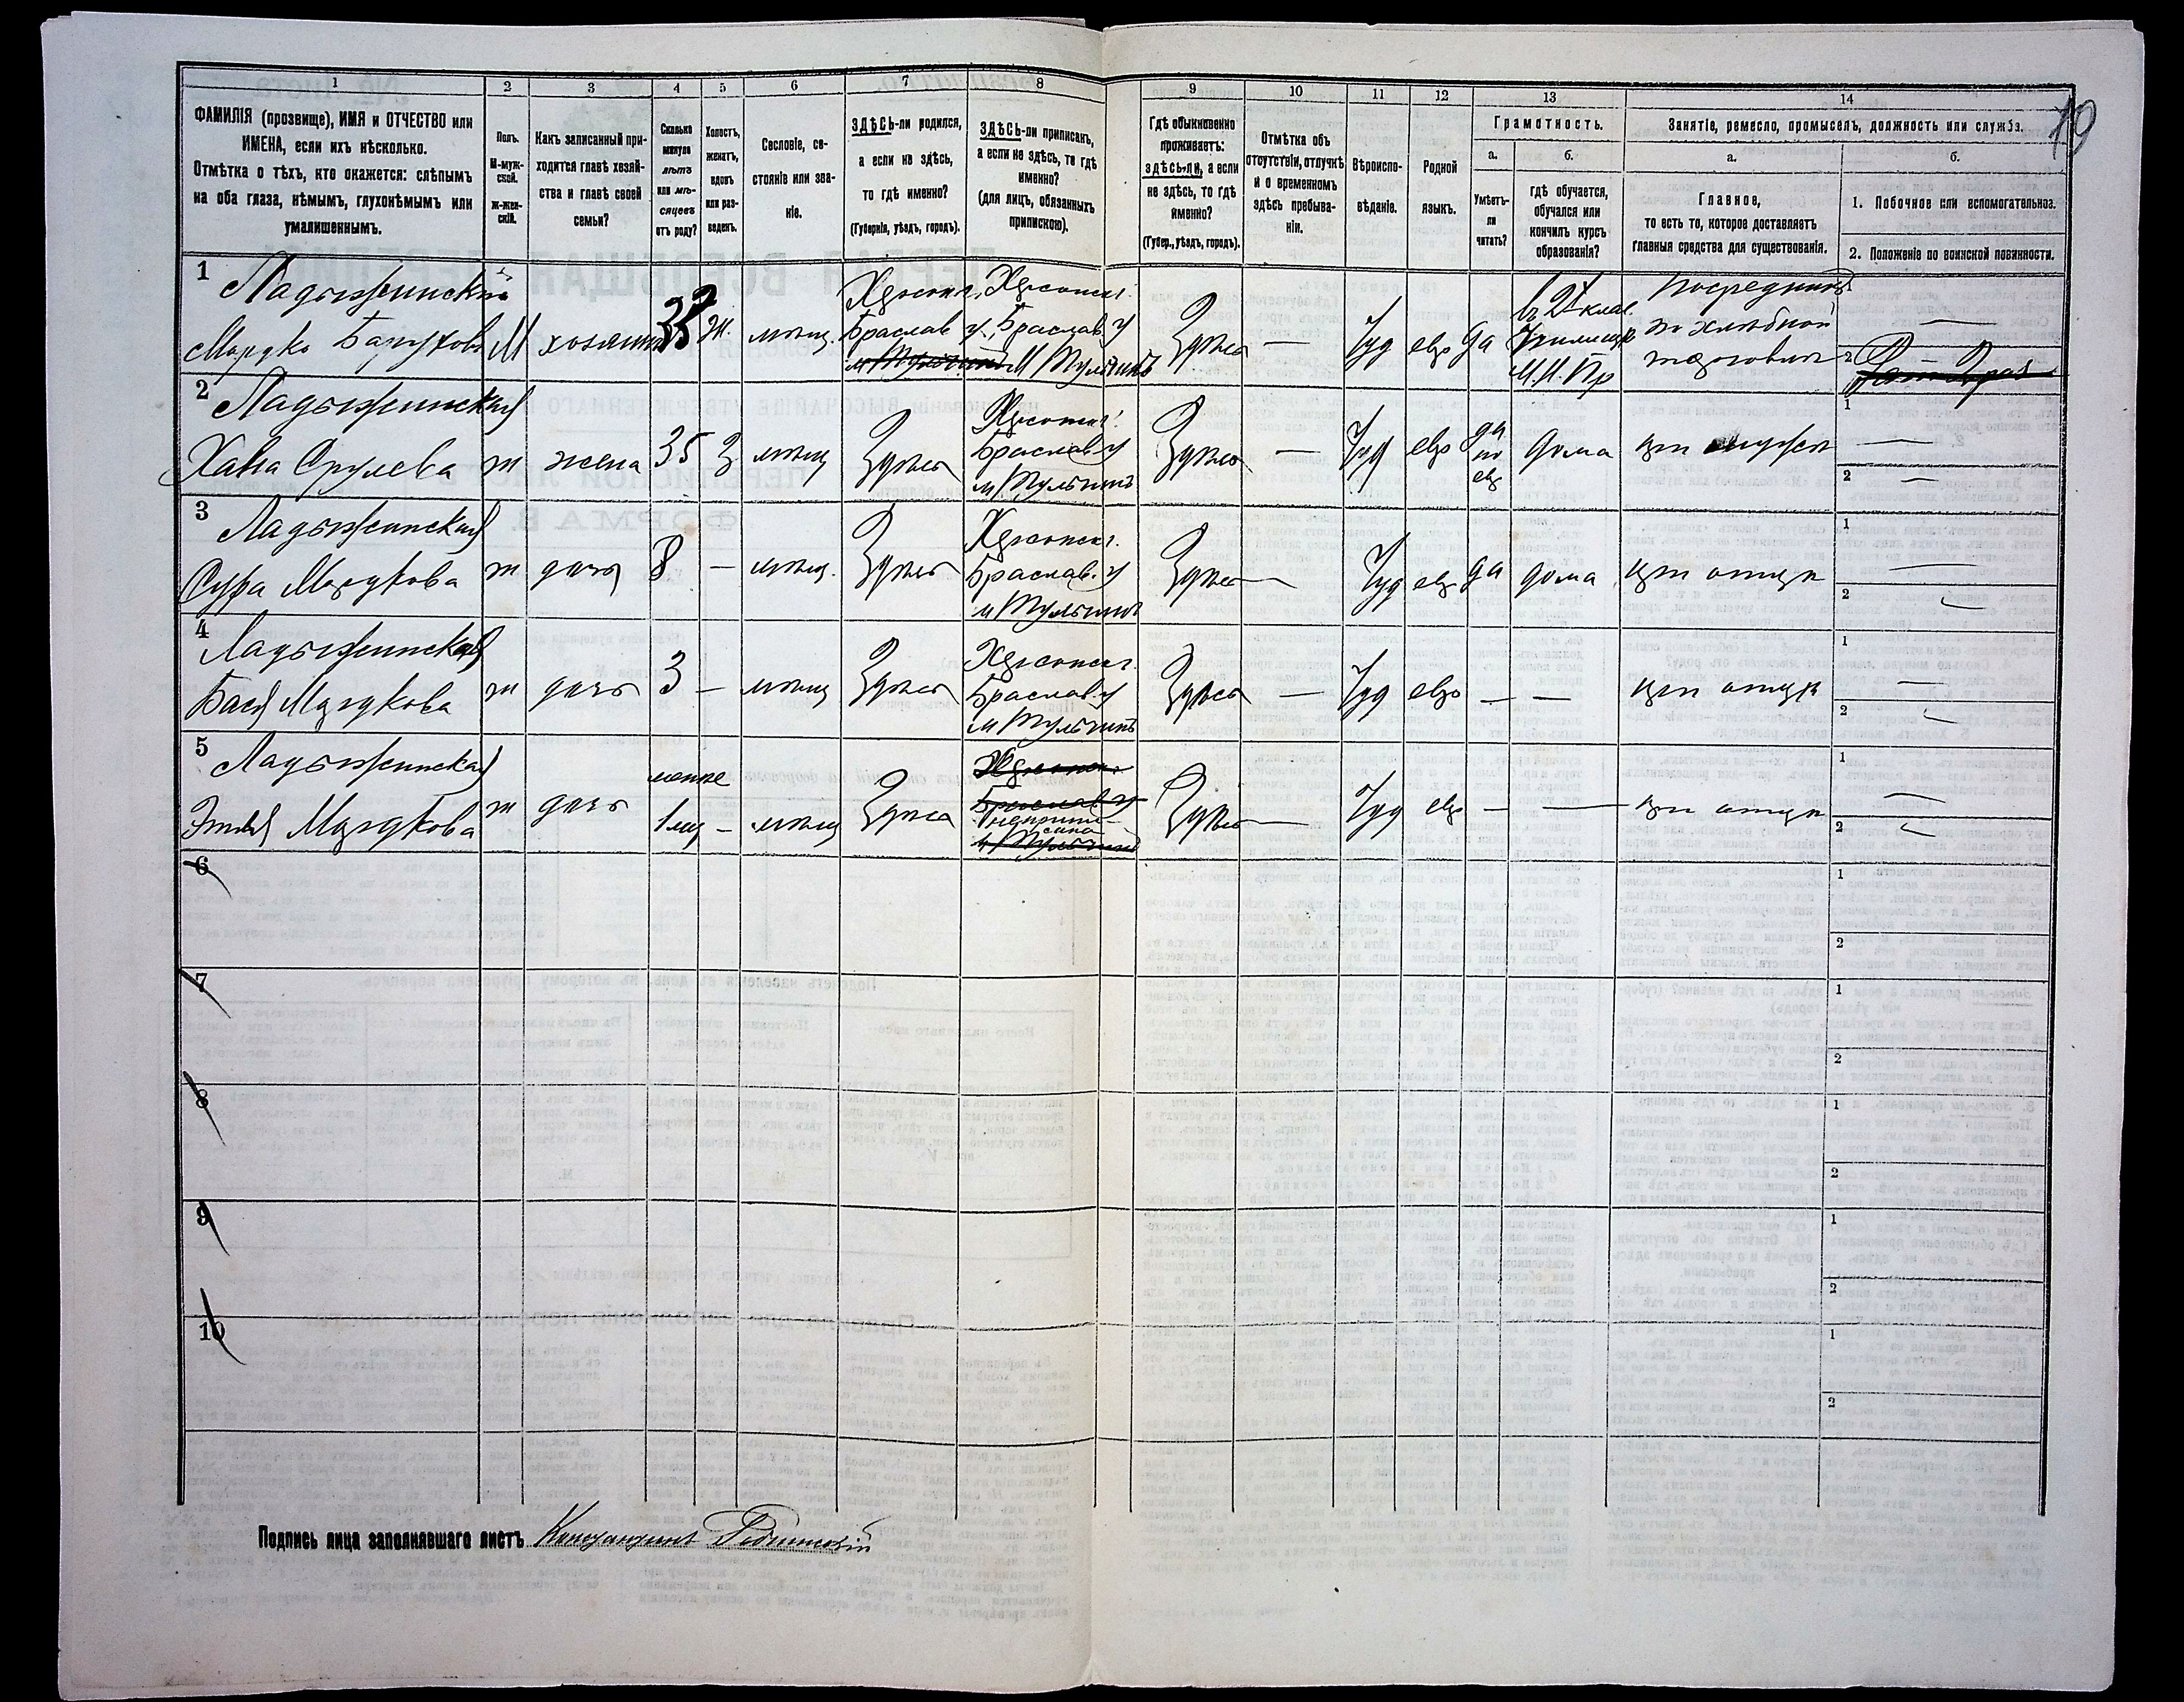 1 2 3 4 5 6 7 8 9 10 11 12 13 14
19
ФАМИЛІЯ (прозвище), ИМЯ и ОТЧЕСТВО или
ИМЕНА, если ихъ нѣсколько.
Отмѣтка о тѣхъ, кто окажется: слѣпымъ
на оба глаза, нѣмымъ, глухонѣмымъ или
умалишеннымъ.
Полъ.
М-муж-
ской.
Ж-жен-
скій.
Какъ записанный при-
ходится главѣ хозяй-
ства и главѣ своей
семьи?
Сколько
минуло
лѣтъ
или мѣ-
сяцевъ
отъ роду?
Холостъ,
женатъ,
вдовъ
или раз-
веденъ.
Сословіе, со-
стояніе или зва-
ніе.
ЗДѢСЬ-ли родился,
а если не здѣсь,
то гдѣ именно?
(Губернія, уѣздъ, городъ).
ЗДѢСЬ-ли приписанъ,
а если не здѣсь, то гдѣ
именно?
(для лицъ, обязанныхъ
припискою).
Гдѣ обыкновенно
проживаетъ:
здѣсь-ли, а если
не здѣсь, то гдѣ
именно?
(Губер., уѣздъ, городъ).
Отмѣтка объ
отсутствіи, отлучкѣ
и о временномъ
здѣсь пребыва-
ніи.
Вѣроиспо-
вѣданіе.
Родной
языкъ.
Грамотность.
а.
Умѣетъ-
ли
читать?
б.
гдѣ обучается,
обучался или
кончилъ курсъ
образованія?
Занятіе, ремесло, промыселъ, должность или служба.
а.
Главное,
то есть то, которое доставляетъ
главныя средства для существованія.
б.
1. Побочное или вспомогательное.
2. Положеніе по воинской повинности.
1 Ладыжинскій
Мордко Баруховъ М хозяинъ ж. мѣщ.
Херсонс г. Браслав у.
Херсонск г. Браслав. у м Тульчинъ
Здѣсь — Іуд евр да
въ 2х клас.
Училищѣ
М.Н.Пр
Посредникъ
по хлѣбной
торговлѣ
1 —
2
2 Ладыжинская
Хана Срулева ж жена 35 з мѣщ Здѣсь
Херсонск г.
Браслав у
м Тульчинъ
Здѣсь — Іуд евр да по евр дома при мужѣ
1 —
2 —
3 Ладыжинская
Сура Мордкова ж дочь 8 — мѣщ. Здѣсь
Херсонск г.
Браслав. у
м Тульчинъ
Здѣсь — Іуд евр да дома при отцѣ
1 —
2 —
4 Ладыжинская
Бася Мордкова ж дочь 3 — мѣщ Здѣсь
Херсонск г.
Браслав. у
м Тульчинъ
Здѣсь — Іуд евр — — при отцѣ
1 —
2 —
5 Ладыжинская
Этля Мордкова ж дочь менѣе 1 мц — мѣщ Здѣсь
Херсонск г.
Браслав у
неприпи-
сана
м Тульчинъ
Здѣсь — Іуд евр — — при отцѣ
1 —
2 —
6
1
2
7
1
2
8
1
2
9
1
2
10
1
2
Подпись лица заполнявшаго листъ